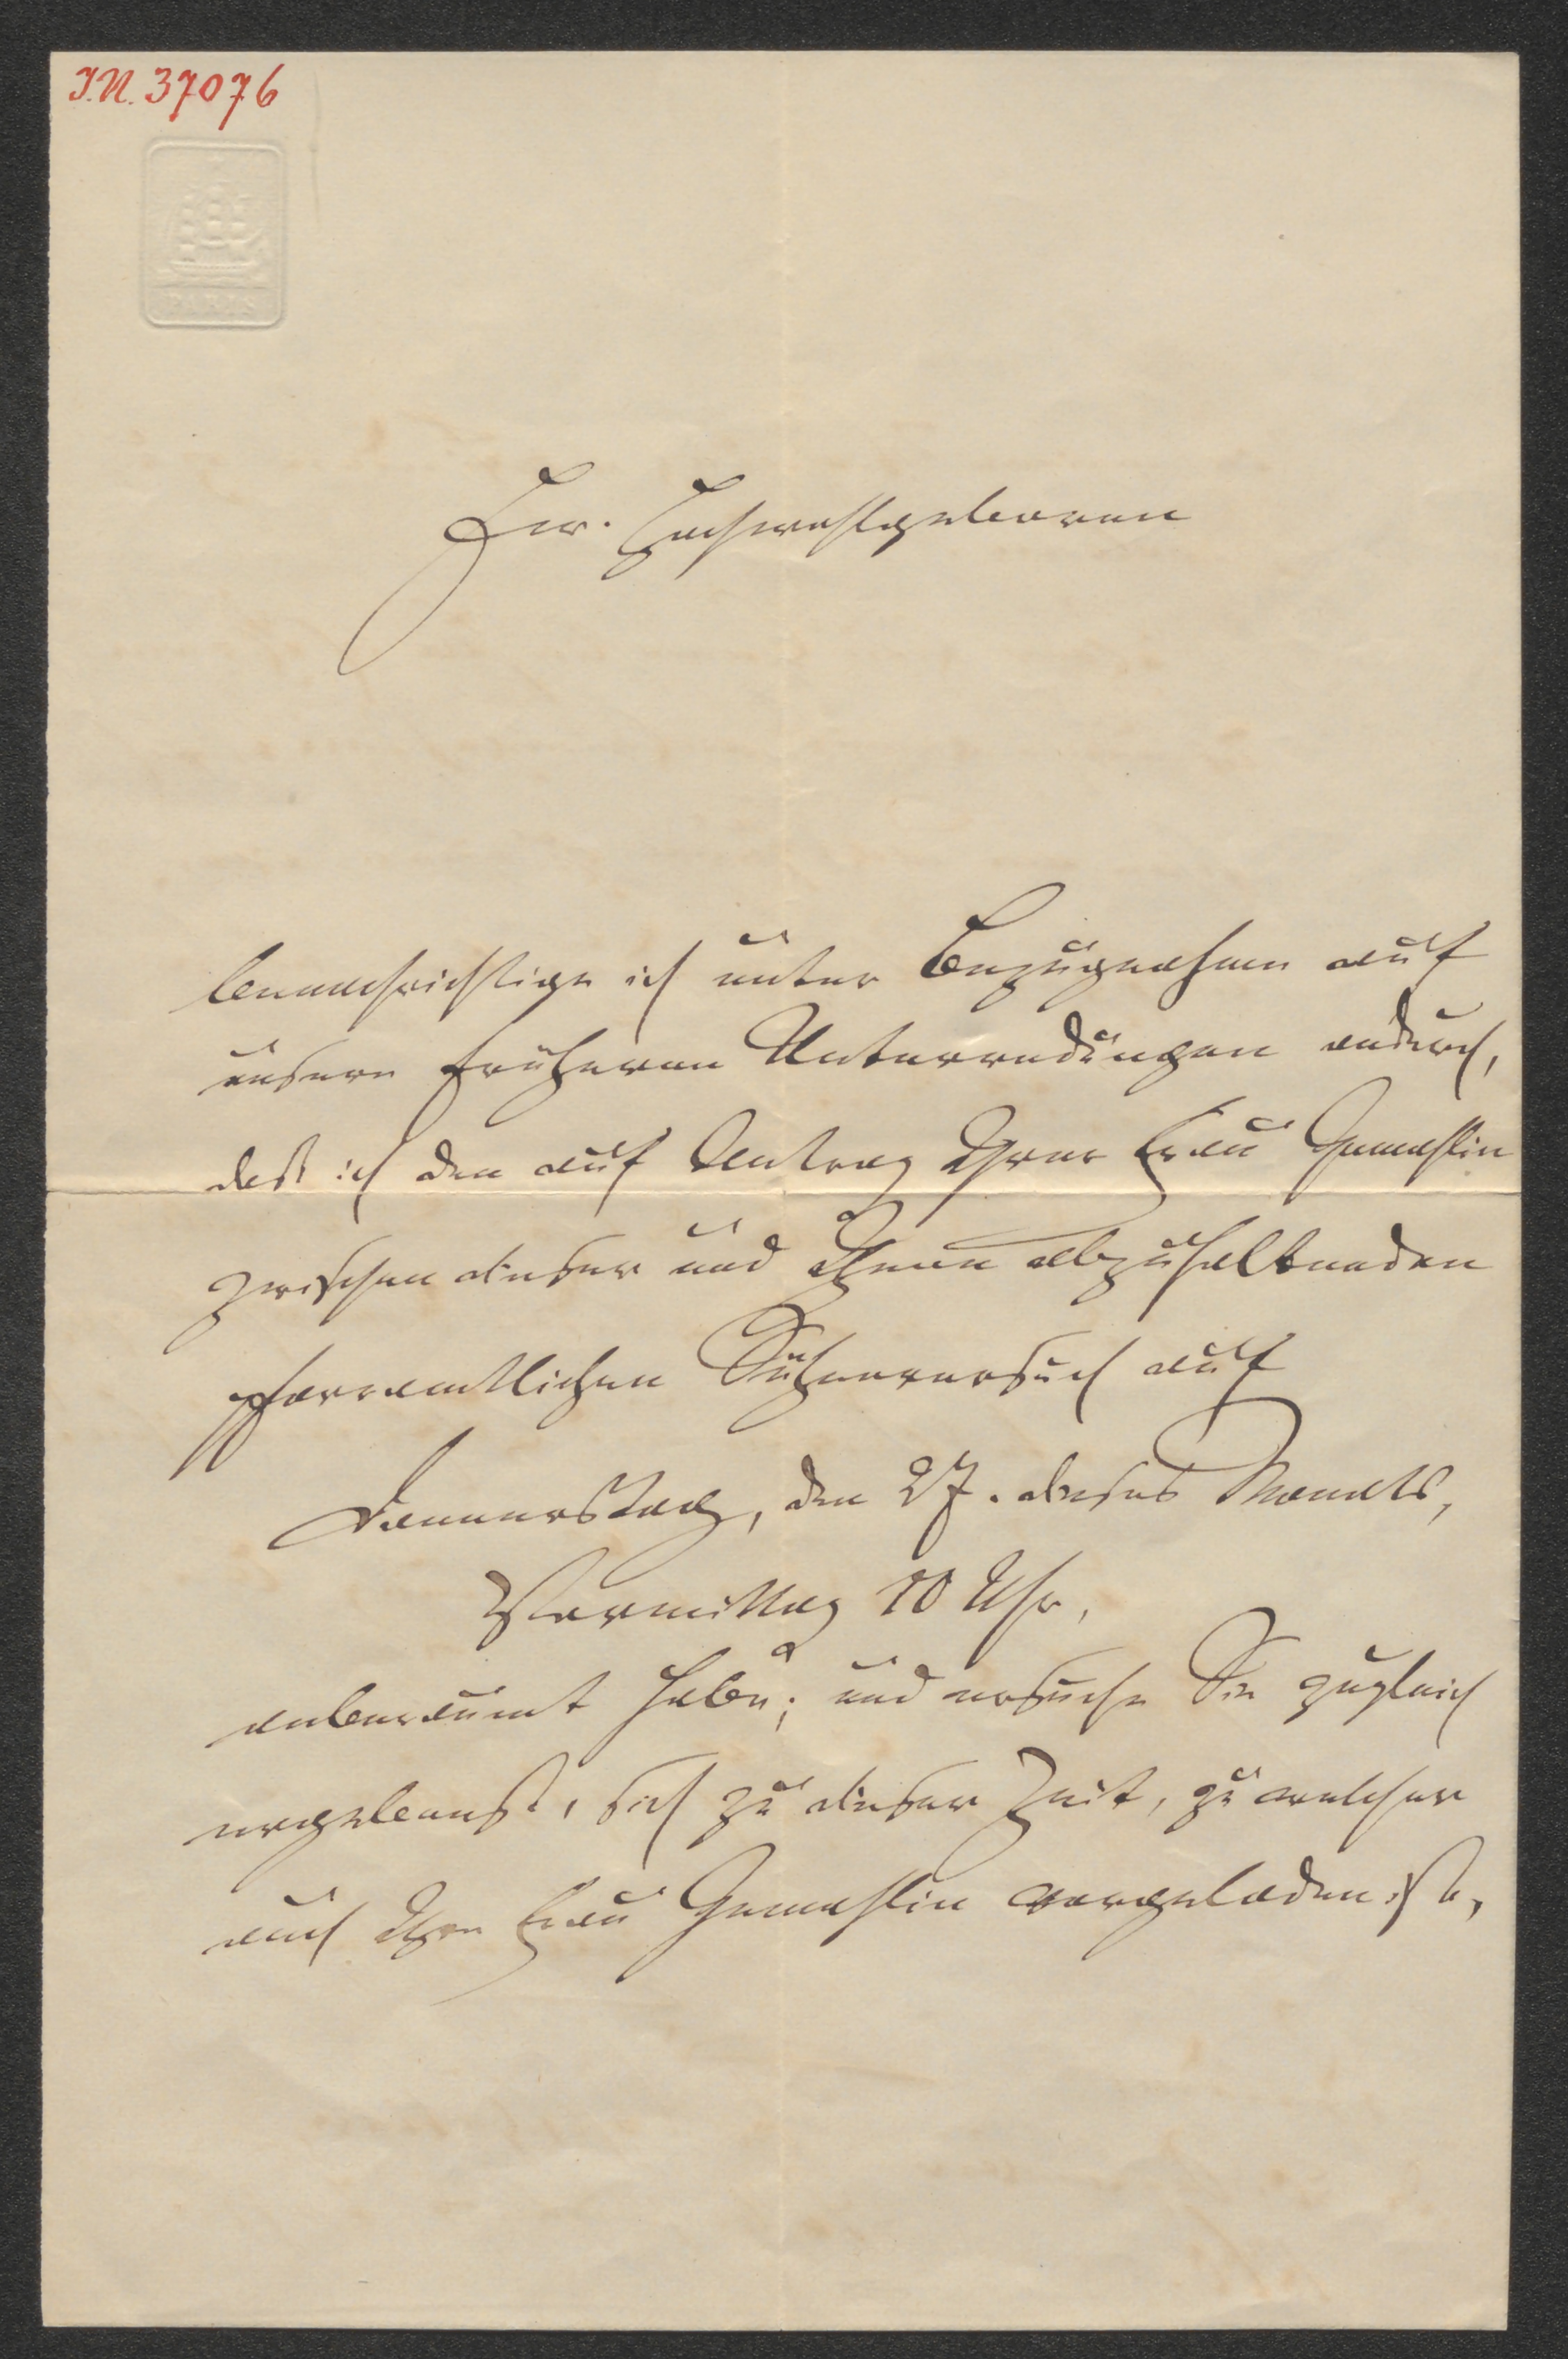 I.N. 37076
PARIS
Ew. Hochwohlgeboren
benachrichtige ich unter Bezugnahme auf
unsere früheren Unterredungen andurch,
daß ich den auf Antrag Ihrer Frau Gemahlin
zwischen dieser und Ihnen abzuhaltenden
pfarramtlichen Sühneversuch auf
Donnerstag, den 27. dieses Monats,
Vormittag 10 Uhr,
anberaumt habe; und ersuche Sie zugleich
ergebenst, sich zu dieser Zeit, zu welcher
auch Ihre Frau Gemahlin vorgeladen ist,